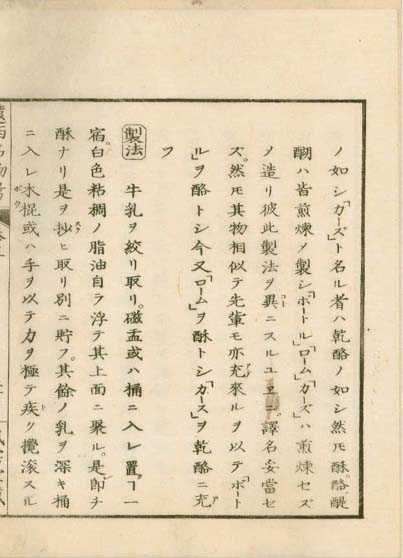 ノ如シ「カーズ」ト名ル者ハ乾酪ノ如シ然モ酥酪醍
醐ハ皆煎煉メ製シ「ボートル」「ローム」「カーズ」ハ煎煉セズ
メ造リ彼此製法ヲ異ニスルユヱニ譯名妥當セ
ズ。然モ其物相似テ先輩モ亦充來ルヲ以テ「ボート
ル」ヲ酪トシ今又「ローム」ヲ酥トシ「カース」ヲ乾酪ニ充
ツ
製法 牛乳ヲ絞リ取リ。磁盂或ハ桶ニ入レ置ヿ一
宿。白色粘稠ノ脂油自ラ浮テ其上面ニ聚ル。是即チ
酥ナリ是ヲ抄ヒ取リ別ニ貯フ。其餘ノ乳ヲ深キ桶
ニ入レ木棍或ハ手ヲ以テ力ヲ極テ疾ク攪滚スル